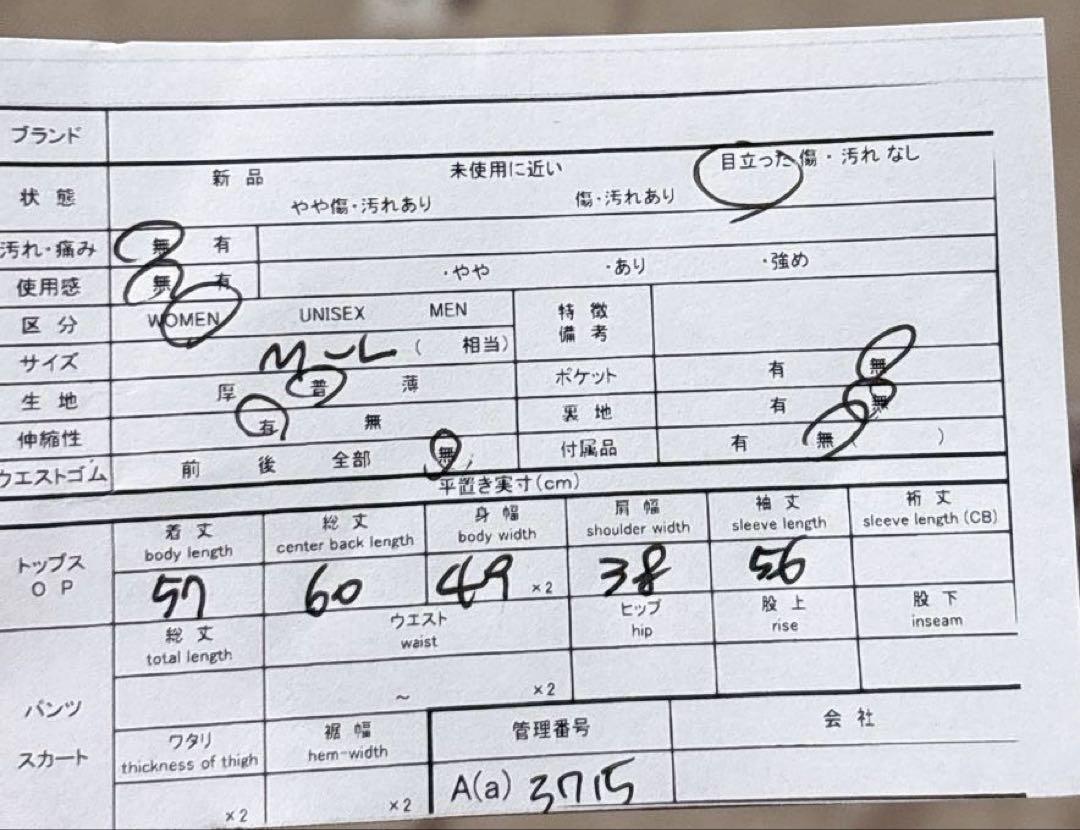 ブランド
状態 新品 未使用に近い 目立った傷・汚れ なし
やや傷・汚れあり 傷・汚れあり
汚れ・痛み 無 有
使用感 無 有 ・やや ・あり ・強め
区分 WOMEN UNISEX MEN 特徴備考
サイズ M-L ( 相当)
生地 厚 普 薄 ポケット 有 無
伸縮性 有 無 裏地 有 無
ウエストゴム 前 後 全部 無 付属品 有 無 ( )
平置き実寸(cm)
トップス OP 着丈 総丈 身幅 肩幅 袖丈 裄丈
body length center back length body width shoulder width sleeve length sleeve length (CB)
57 60 49 ×2 38 56
総丈 ウエスト ヒップ 股上 股下
total length waist hip rise inseam
パンツ ~ ×2
スカート ワタリ 裾幅 管理番号 会社
thickness of thigh hem-width
×2 ×2 A(a) 3715